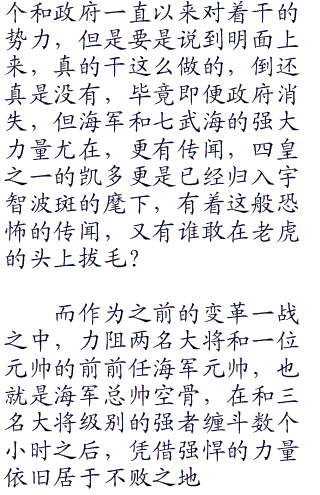 个和政府一直以来对着干的
势力，但是要是说到明面上
来，真的干这么做的，倒还
真是没有，毕竟即便政府消
失，但海军和七武海的强大
力量尤在，更有传闻，四皇
之一的凯多更是已经归入宇
智波斑的麾下，有着这般恐
怖的传闻，又有谁敢在老虎
的头上拔毛？
而作为之前的变革一战
之中，力阻两名大将和一位
元帅的前前任海军元帅，也
就是海军总帅空骨，在和三
名大将级别的强者缠斗数个
小时之后，凭借强悍的力量
依旧居于不败之地